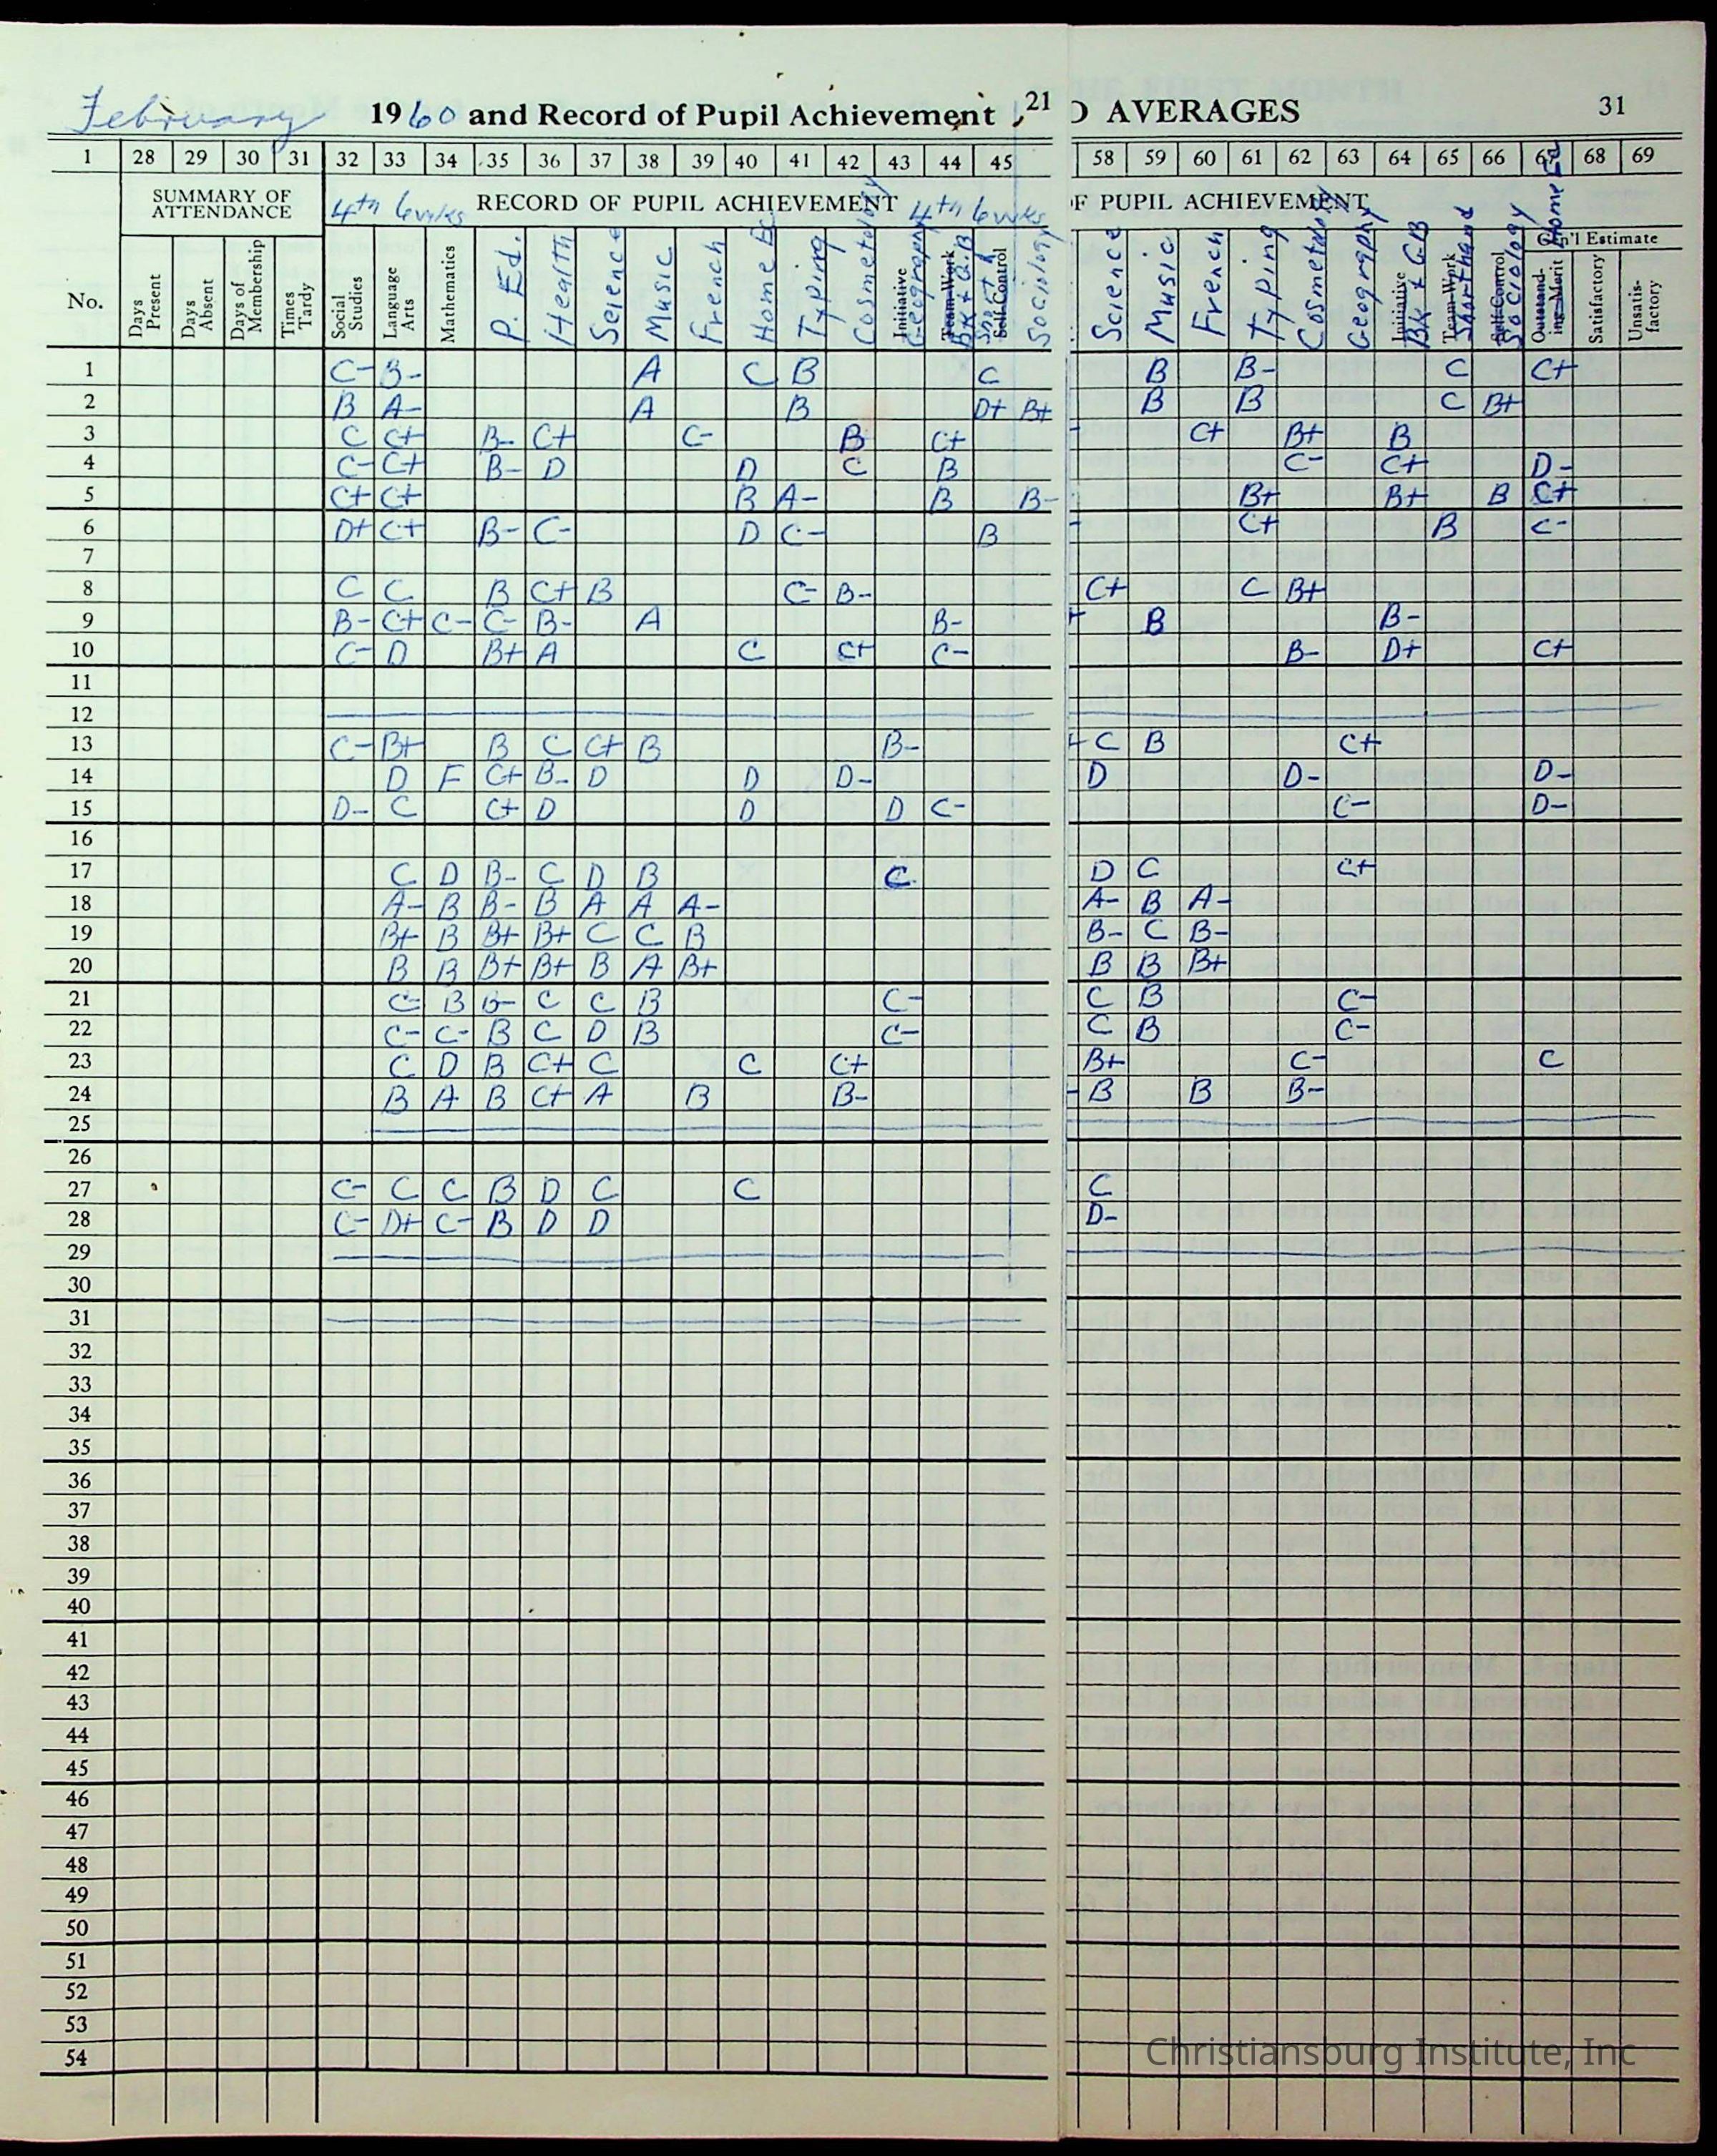 February 1960 and Record of Pupil Achievement, 21 D AVERAGES 31
1 28 29 30 31 32 33 34 35 36 37 38 39 40 41 42 43 44 45 58 59 60 61 62 63 64 65 66 67 68 69
SUMMARY OF ATTENDANCE 4th 6 wks RECORD OF PUPIL ACHIEVEMENT 4th 6 wks F PUPIL ACHIEVEMENT
Gen'l Estimate
No. Days Present Days Absent Days of Membership Times Tardy Social Studies Language Arts Mathematics P. Ed. Health Science Music French Home Ec Typing Cosmetology Initiative Geography Team-Work BK + G.B Short h Self Control Sociology Science Music French Typing Cosmetology Geography Initiative BK + GB Team-Work Shorthand Self Control Sociology Outstanding Merit Home Ed Satisfactory Unsatisfactory
1 C- B- A C B C B B- C C+
2 B A- A B D+ B+ B B C B+
3 C C+ B- C+ C- B C+ - C+ B+ B
4 C- C+ B- D D C B C- C+ D-
5 C+ C+ B A- B B- B+ B+ B C+
6 D+ C+ B- C- D C- B - C+ B C-
7
8 C C B C+ B C- B- C+ C B+
9 B- C+ C- C- B- A B- + B B-
10 C- D B+ A C C+ C- B- D+ C+
11
12
13 C- B+ B C C+ B B- + C B C+
14 D F C+ B- D D D- D D- D-
15 D- C C+ D D D C- C- D-
16
17 C D B- C D B C D C C+
18 A- B B- B A A A- A- B A-
19 B+ B B+ B+ C C B B- C B-
20 B B B+ B+ B A B+ B B B+
21 C- B B- C C B C- C B C-
22 C- C- B C D B C- C B C-
23 C D B C+ C C C+ B+ C- C
24 B A B C+ A B B- - B B B-
25
26
27 C- C C B D C C C
28 C- D+ C- B D D D-
29
30
31
32
33
34
35
36
37
38
39
40
41
42
43
44
45
46
47
48
49
50
51
52
53
54
Christiansburg Institute, Inc